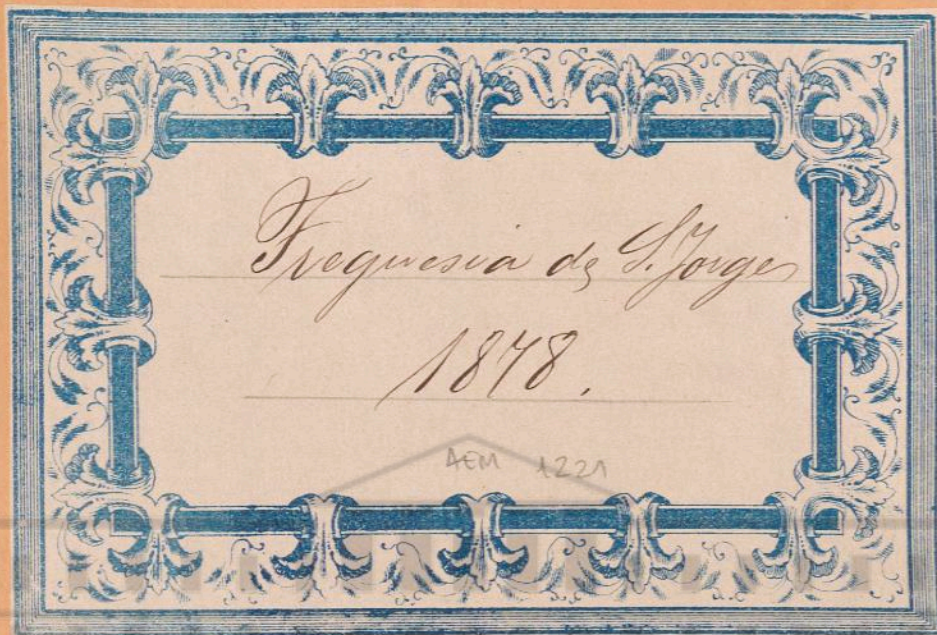 Freguesia de S. Jorge
1878.
AEM 1221